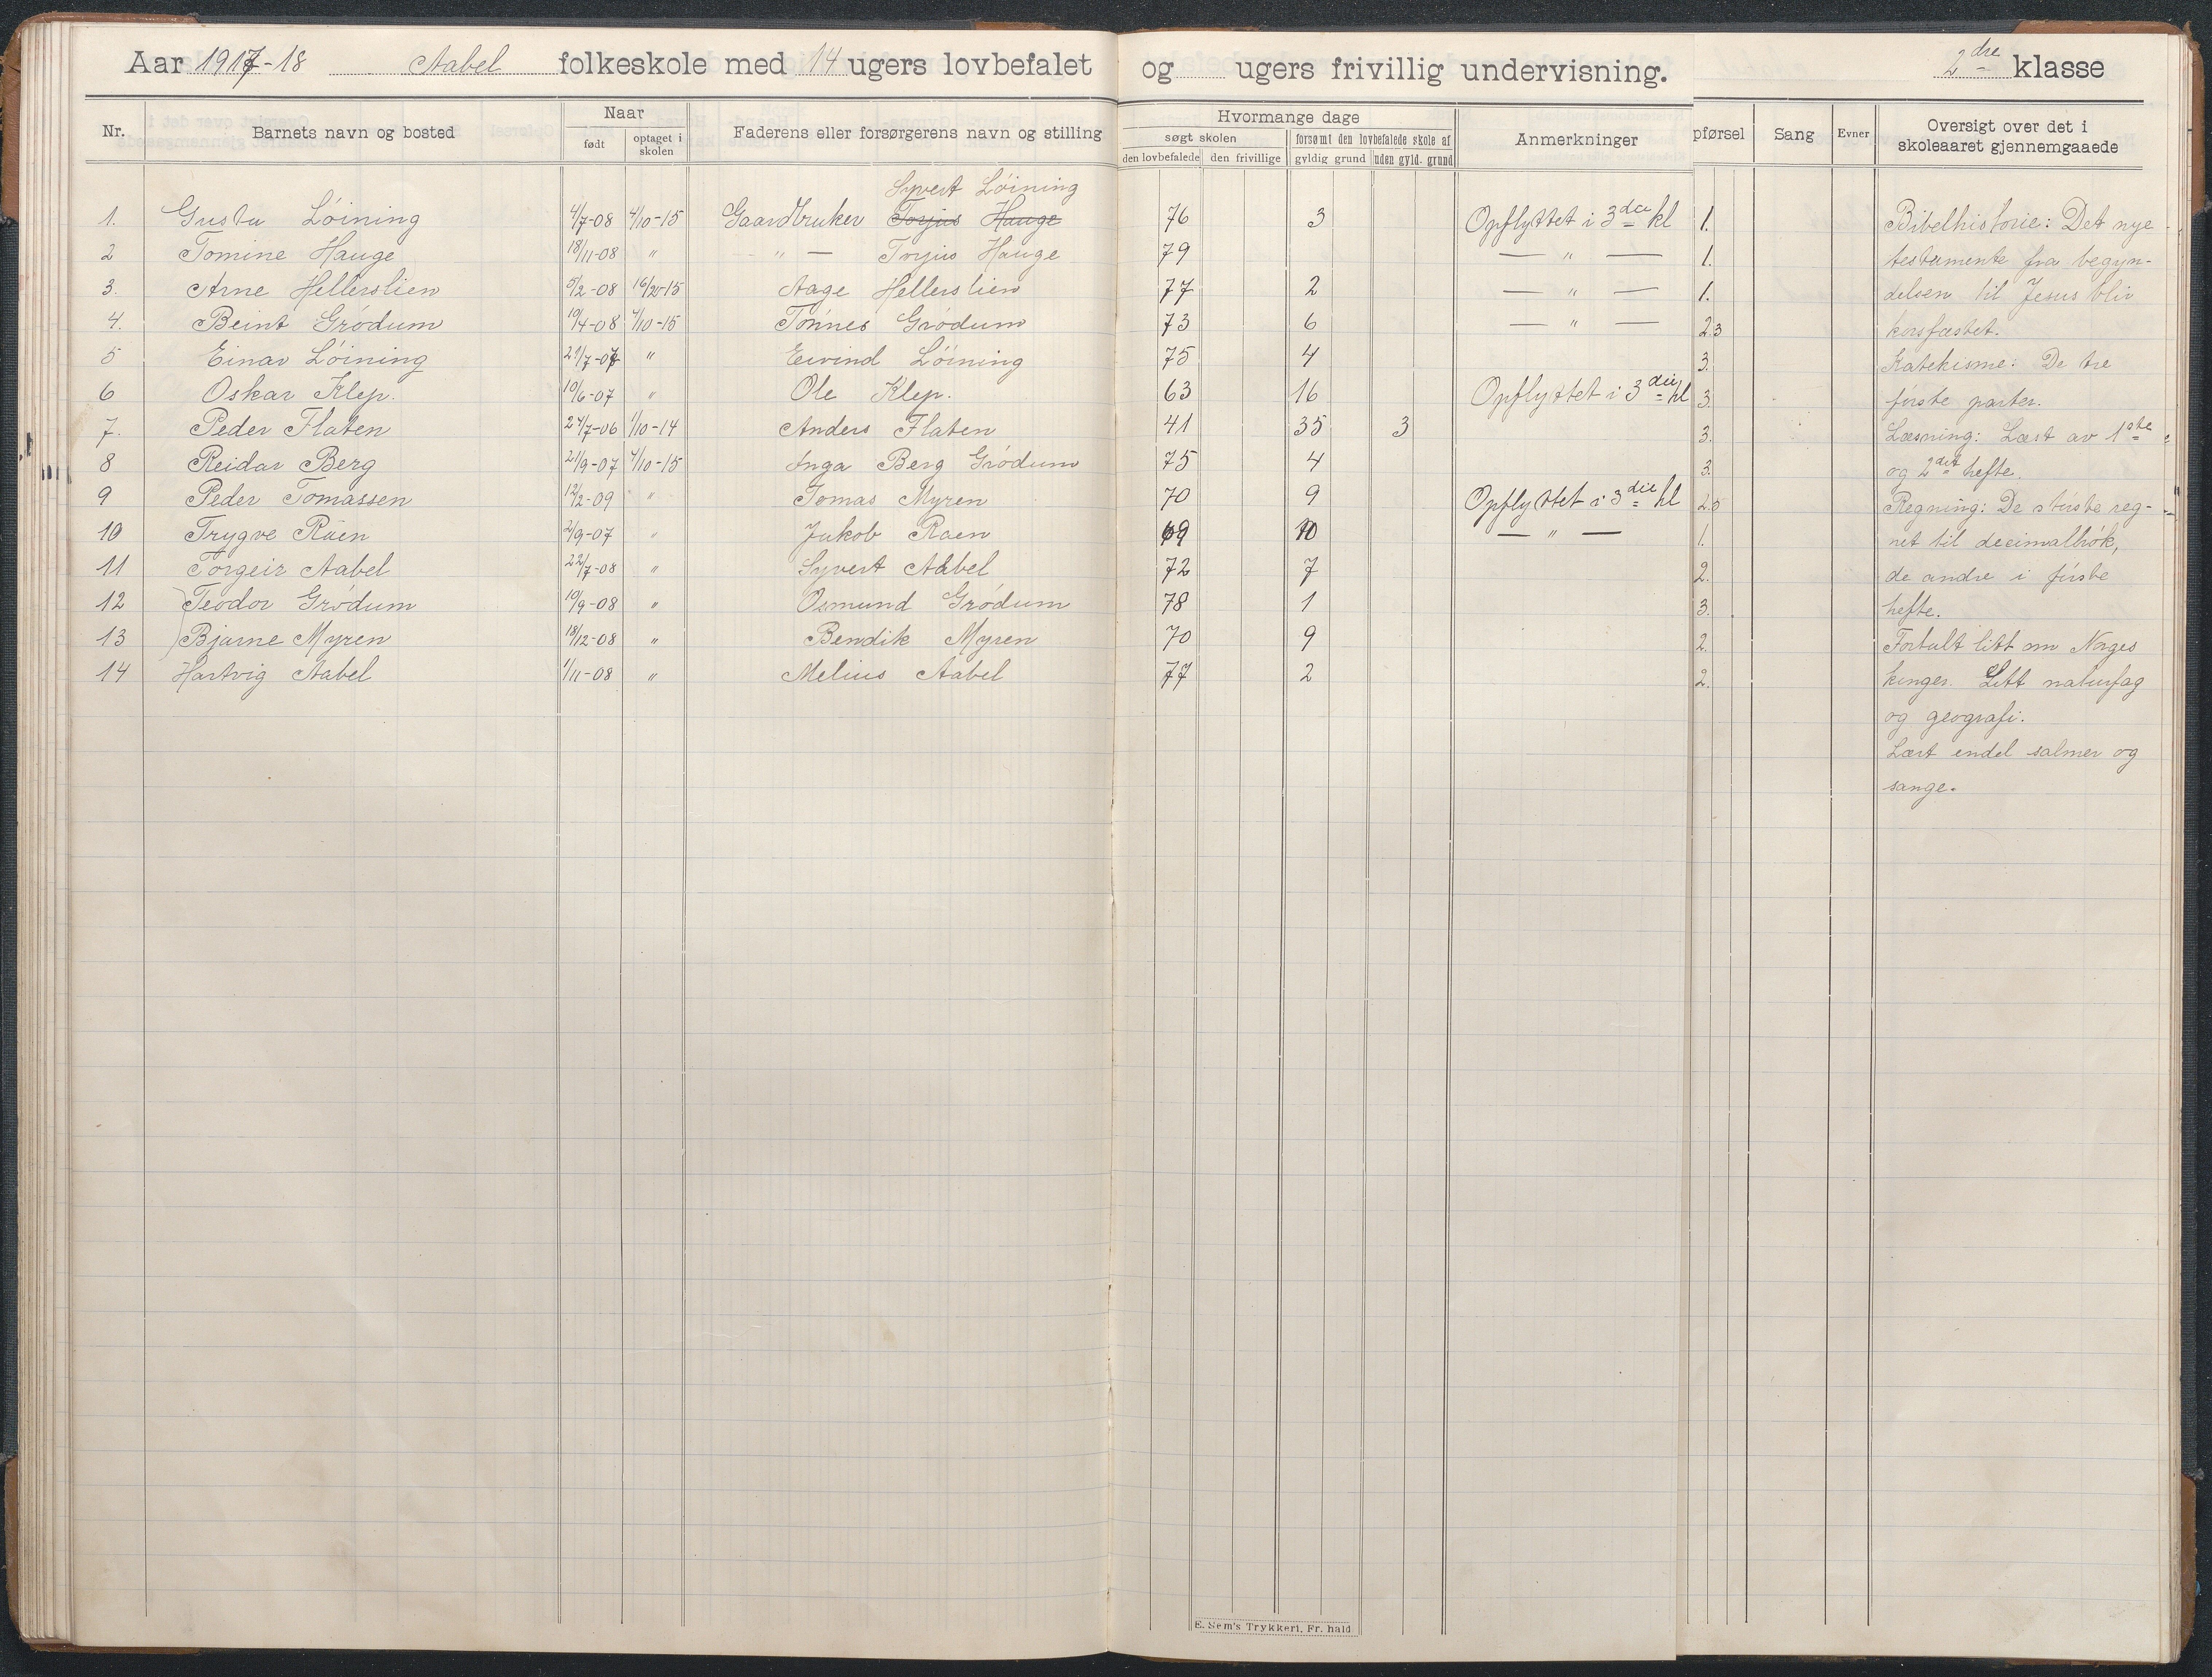 Aar 1917-18 Aabel folkeskole med 14 ugers lovbefalet og ugers frivillig undervisning. 2dre klasse
Nr. Barnets navn og bosted Naar født optaget i skolen Faderens eller forsørgerens navn og stilling Hvormange dage søgt skolen den lovbefalede den frivillige forsømt den lovbefalede skole af gyldig grund uden gyld. grund Anmerkninger pførsel Sang Evner Oversigt over det i skoleaaret gjennemgaaede
Syvert Löining
1. Gusta Löining 4/7-08 4/10-15 Gaardbruker Torjus Hauge 76 3 Opflyttet i 3die kl 1. Bibelhistorie: Det nye
2 Tomine Hauge 18/11-08 " " — Torjus Hauge 79 — " — 1. testamente fra begyn-
3. Arne Hellerslien 5/2-08 16/20-15 Aage Hellerslien 77 2 — " — 1. delsen til Jesus blir
4. Beint Gródum 19/4-08 4/10-15 Tónnes Gródum 73 6 — " — 2.3 korsfæstet.
5 Einar Löining 21/7-07 " Eivind Löining 75 4 3. Katekisme: De tre
6 Oskar Klep. 19/6-07 " Ole Klep. 63 16 Opflyttet i 3die kl 3. fórste parter.
7. Peder Flaten 27/7-06 1/10-14 Anders Flaten 41 35 3 3. Læsning: Læst av 1ste
8 Reidar Berg 21/9-07 4/10-15 Inga Berg Gródum 75 4 3. og 2det hefte.
9 Peder Tomassen 12/2-09 " Tomas Myren 70 9 Opflyttet i 3die kl 2.5 Regning: De stórste reg-
10 Trygve Raen 2/9-07 " Jakob Raen 69 10 — " — 1. net til decimalbrók,
11 Torgeir Aabel 22/7-08 " Syvert Aabel 72 7 2. de andre i fórste
12 Teodor Gródum 19/9-08 " Osmund Gródum 78 1 3. hefte.
13 Bjarne Myren 18/12-08 " Bendik Myren 70 9 2. Fortalt litt om Norges
14 Hartvig Aabel 1/11-08 " Melius Aabel 77 2 2. konger. Litt naturfag
og geografi.
Lært endel salmer og
sange.
E. Sem's Trykkeri, Fr. hald